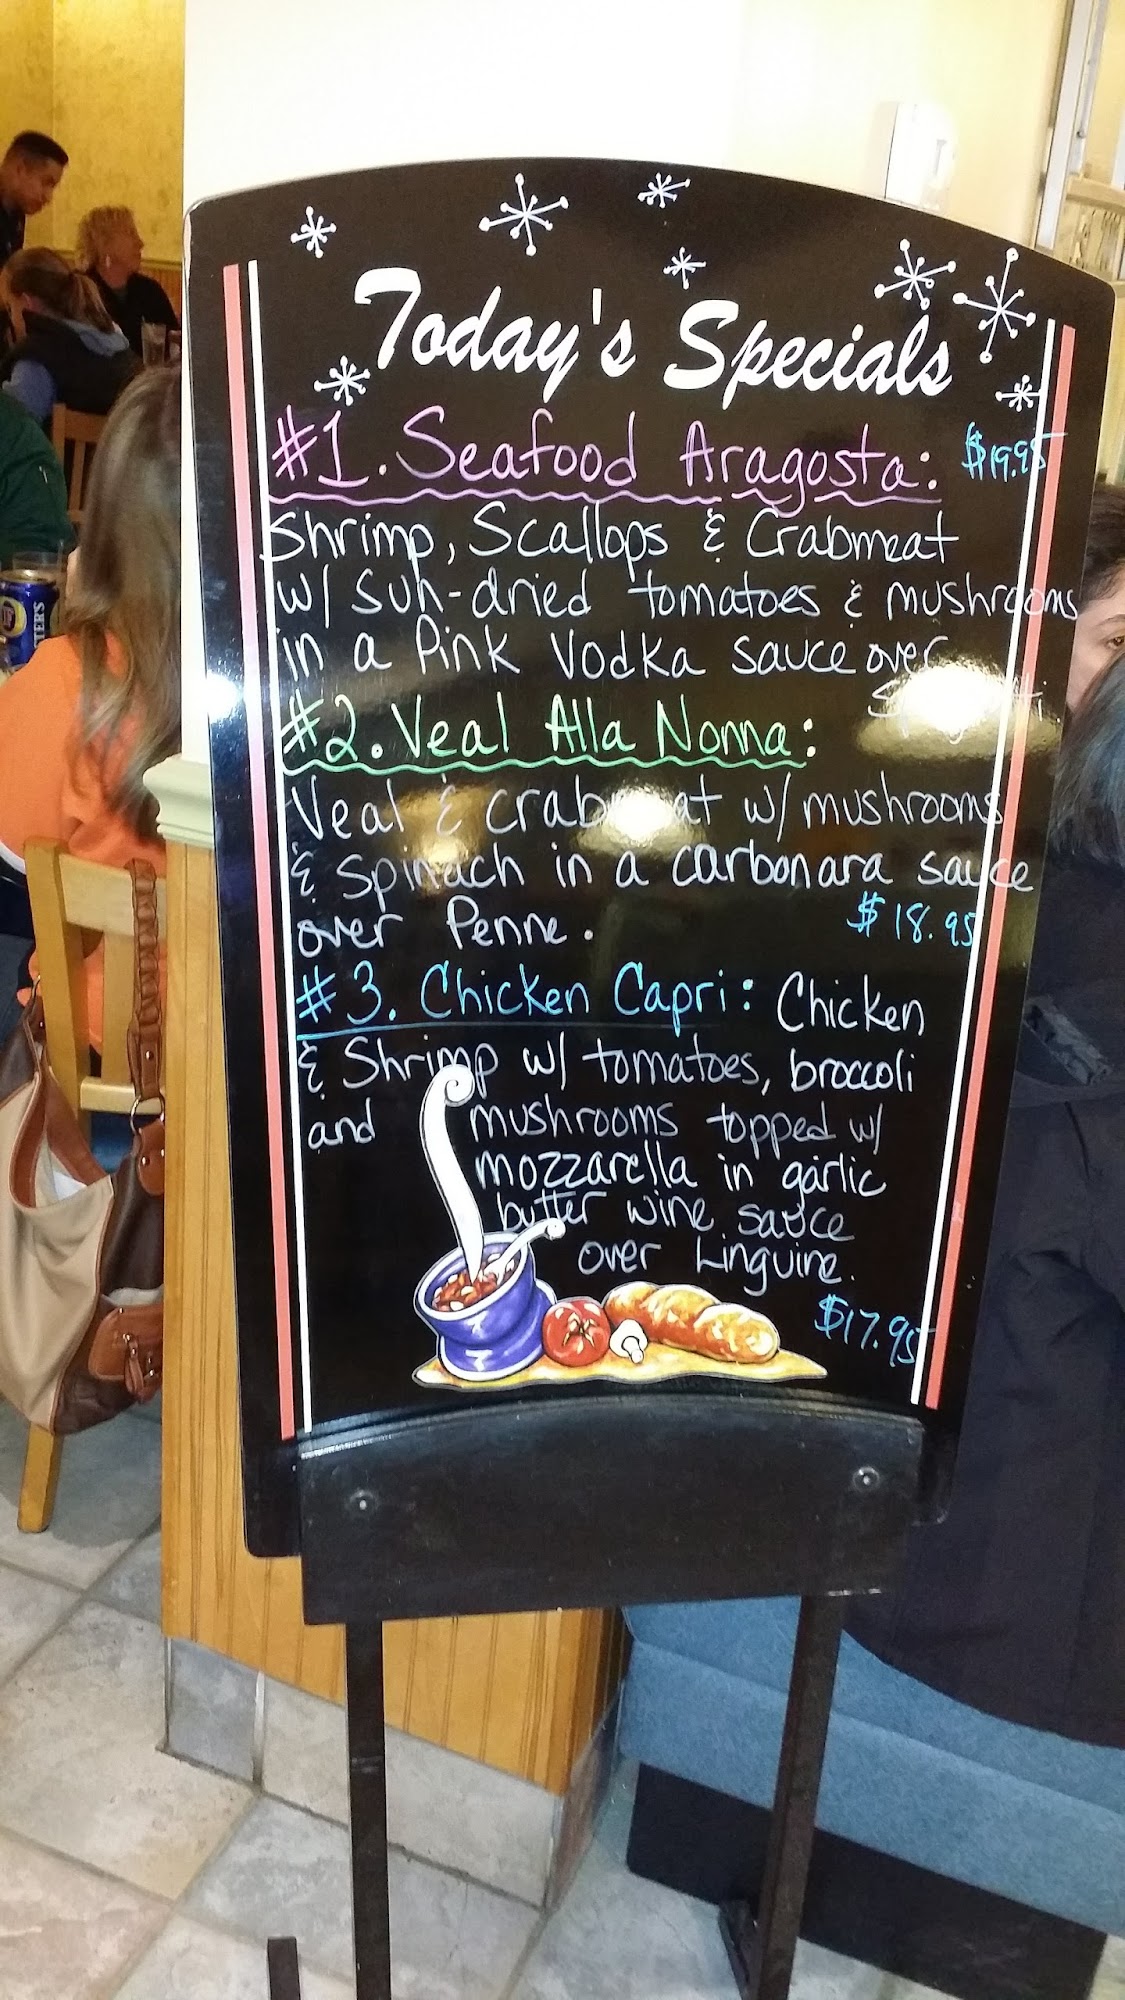 Today's Specials
#1. Seafood Aragosta: $19.95
Shrimp, Scallops & Crabmeat
w/ Sun-dried tomatoes & mushrooms
in a Pink Vodka sauce over
#2. Veal Alla Nonna:
Veal & crabmeat w/ mushrooms
& Spinach in a carbonara sauce
over Penne. $18.95
#3. Chicken Capri: Chicken
& Shrimp w/ tomatoes, broccoli
and mushrooms topped w/
mozzarella in garlic
butter wine sauce
over Linguine.
$17.95